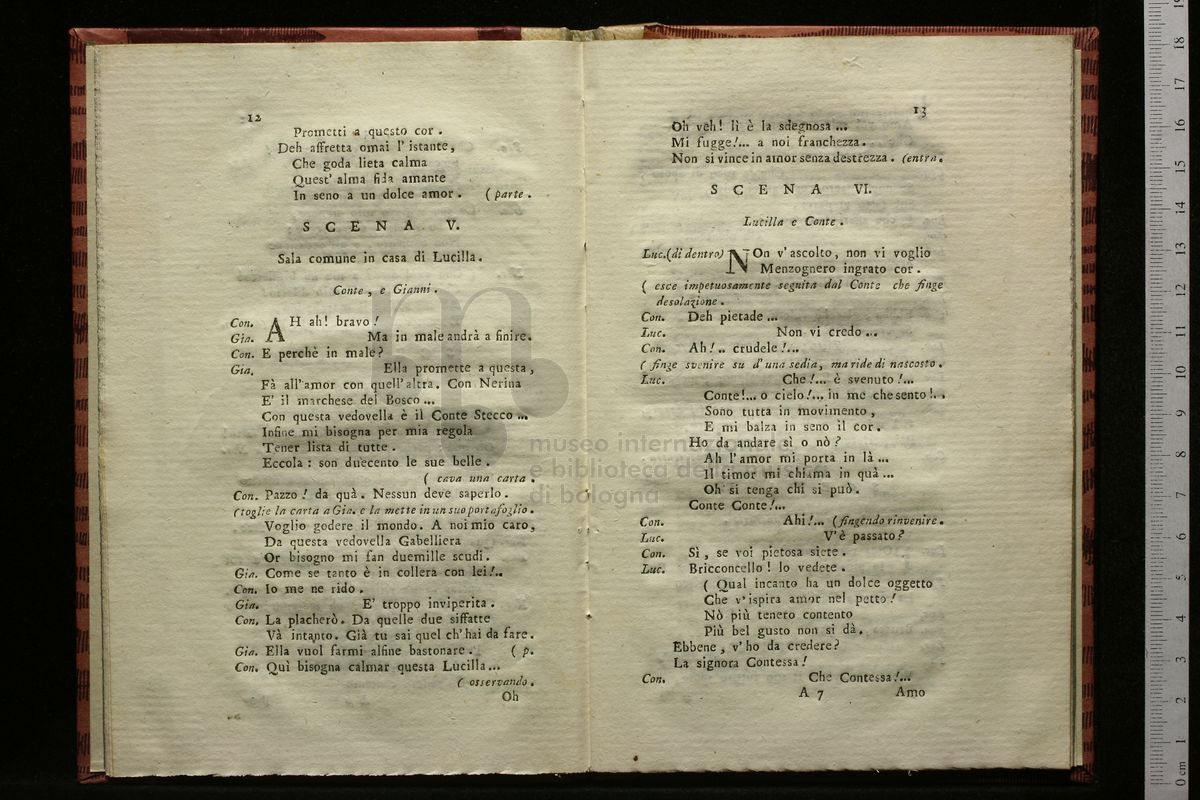 12
Prometti a questo cor .
Deh affretta omai l' istante,
Che goda lieta calma
Quest' alma fida amante
In seno a un dolce amor . ( parte .
SCENA V.
Sala comune in casa di Lucilla .
Conte , e Gianni .
Con. AH ah! bravo !
Gia. Ma in male andrà a finire.
Con. E perchè in male?
Gia. Ella promette a questa ,
Fà all'amor con quell'altra. Con Nerina
E' il marchese del Bosco ...
Con questa vedovella è il Conte Stecco ...
Infine mi bisogna per mia regola
Tener lista di tutte .
Eccola : son duecento le sue belle .
( cava una carta .
Con. Pazzo ! da quà . Nessun deve saperlo .
(toglie la carta a Gia. e la mette in un suo portafoglio .
Voglio godere il mondo. A noi mio caro,
Da questa vedovella Gabelliera
Or bisogno mi fan duemille scudi .
Gia. Come se tanto è in collera con lei !..
Con. Io me ne rido .
Gia. E' troppo inviperita .
Con. La placherò. Da quelle due siffatte
Và intanto. Già tu sai quel ch' hai da fare.
Gia. Ella vuol farmi alfine bastonare . ( p.
Con. Quì bisogna calmar questa Lucilla ...
( osservando .
Oh
13
Oh veh! lì è la sdegnosa ...
Mi fugge !... a noi franchezza .
Non si vince in amor senza destrezza . (entra.
SCENA VI.
Lucilla e Conte .
Luc.(di dentro) NOn v' ascolto, non vi voglio
Menzognero ingrato cor .
( esce impetuosamente seguita dal Conte che finge
desolazione .
Con. Deh pietade ...
Luc. Non vi credo ...
Con. Ah! .. crudele !...
( finge svenire su d' una sedia, ma ride di nascosto .
Luc. Che !... è svenuto !...
Conte!... o cielo!... in me che sento !. .
Sono tutta in movimento ,
E mi balza in seno il cor .
Ho da andare sì o nò ?
Ah l'amor mi porta in là ...
Il timor mi chiama in quà ...
Oh si tenga chi si può .
Conte Conte!...
Con. Ahi !... (fingendo rinvenire .
Luc. V'è passato ?
Con. Sì , se voi pietosa siete .
Luc. Bricconcello ! lo vedete .
( Qual incanto ha un dolce oggetto
Che v'ispira amor nel petto !
Nò più tenero contento
Più bel gusto non si dà .
Ebbene , v' ho da credere?
La signora Contessa !
Con. Che Contessa !...
A 7 Amo